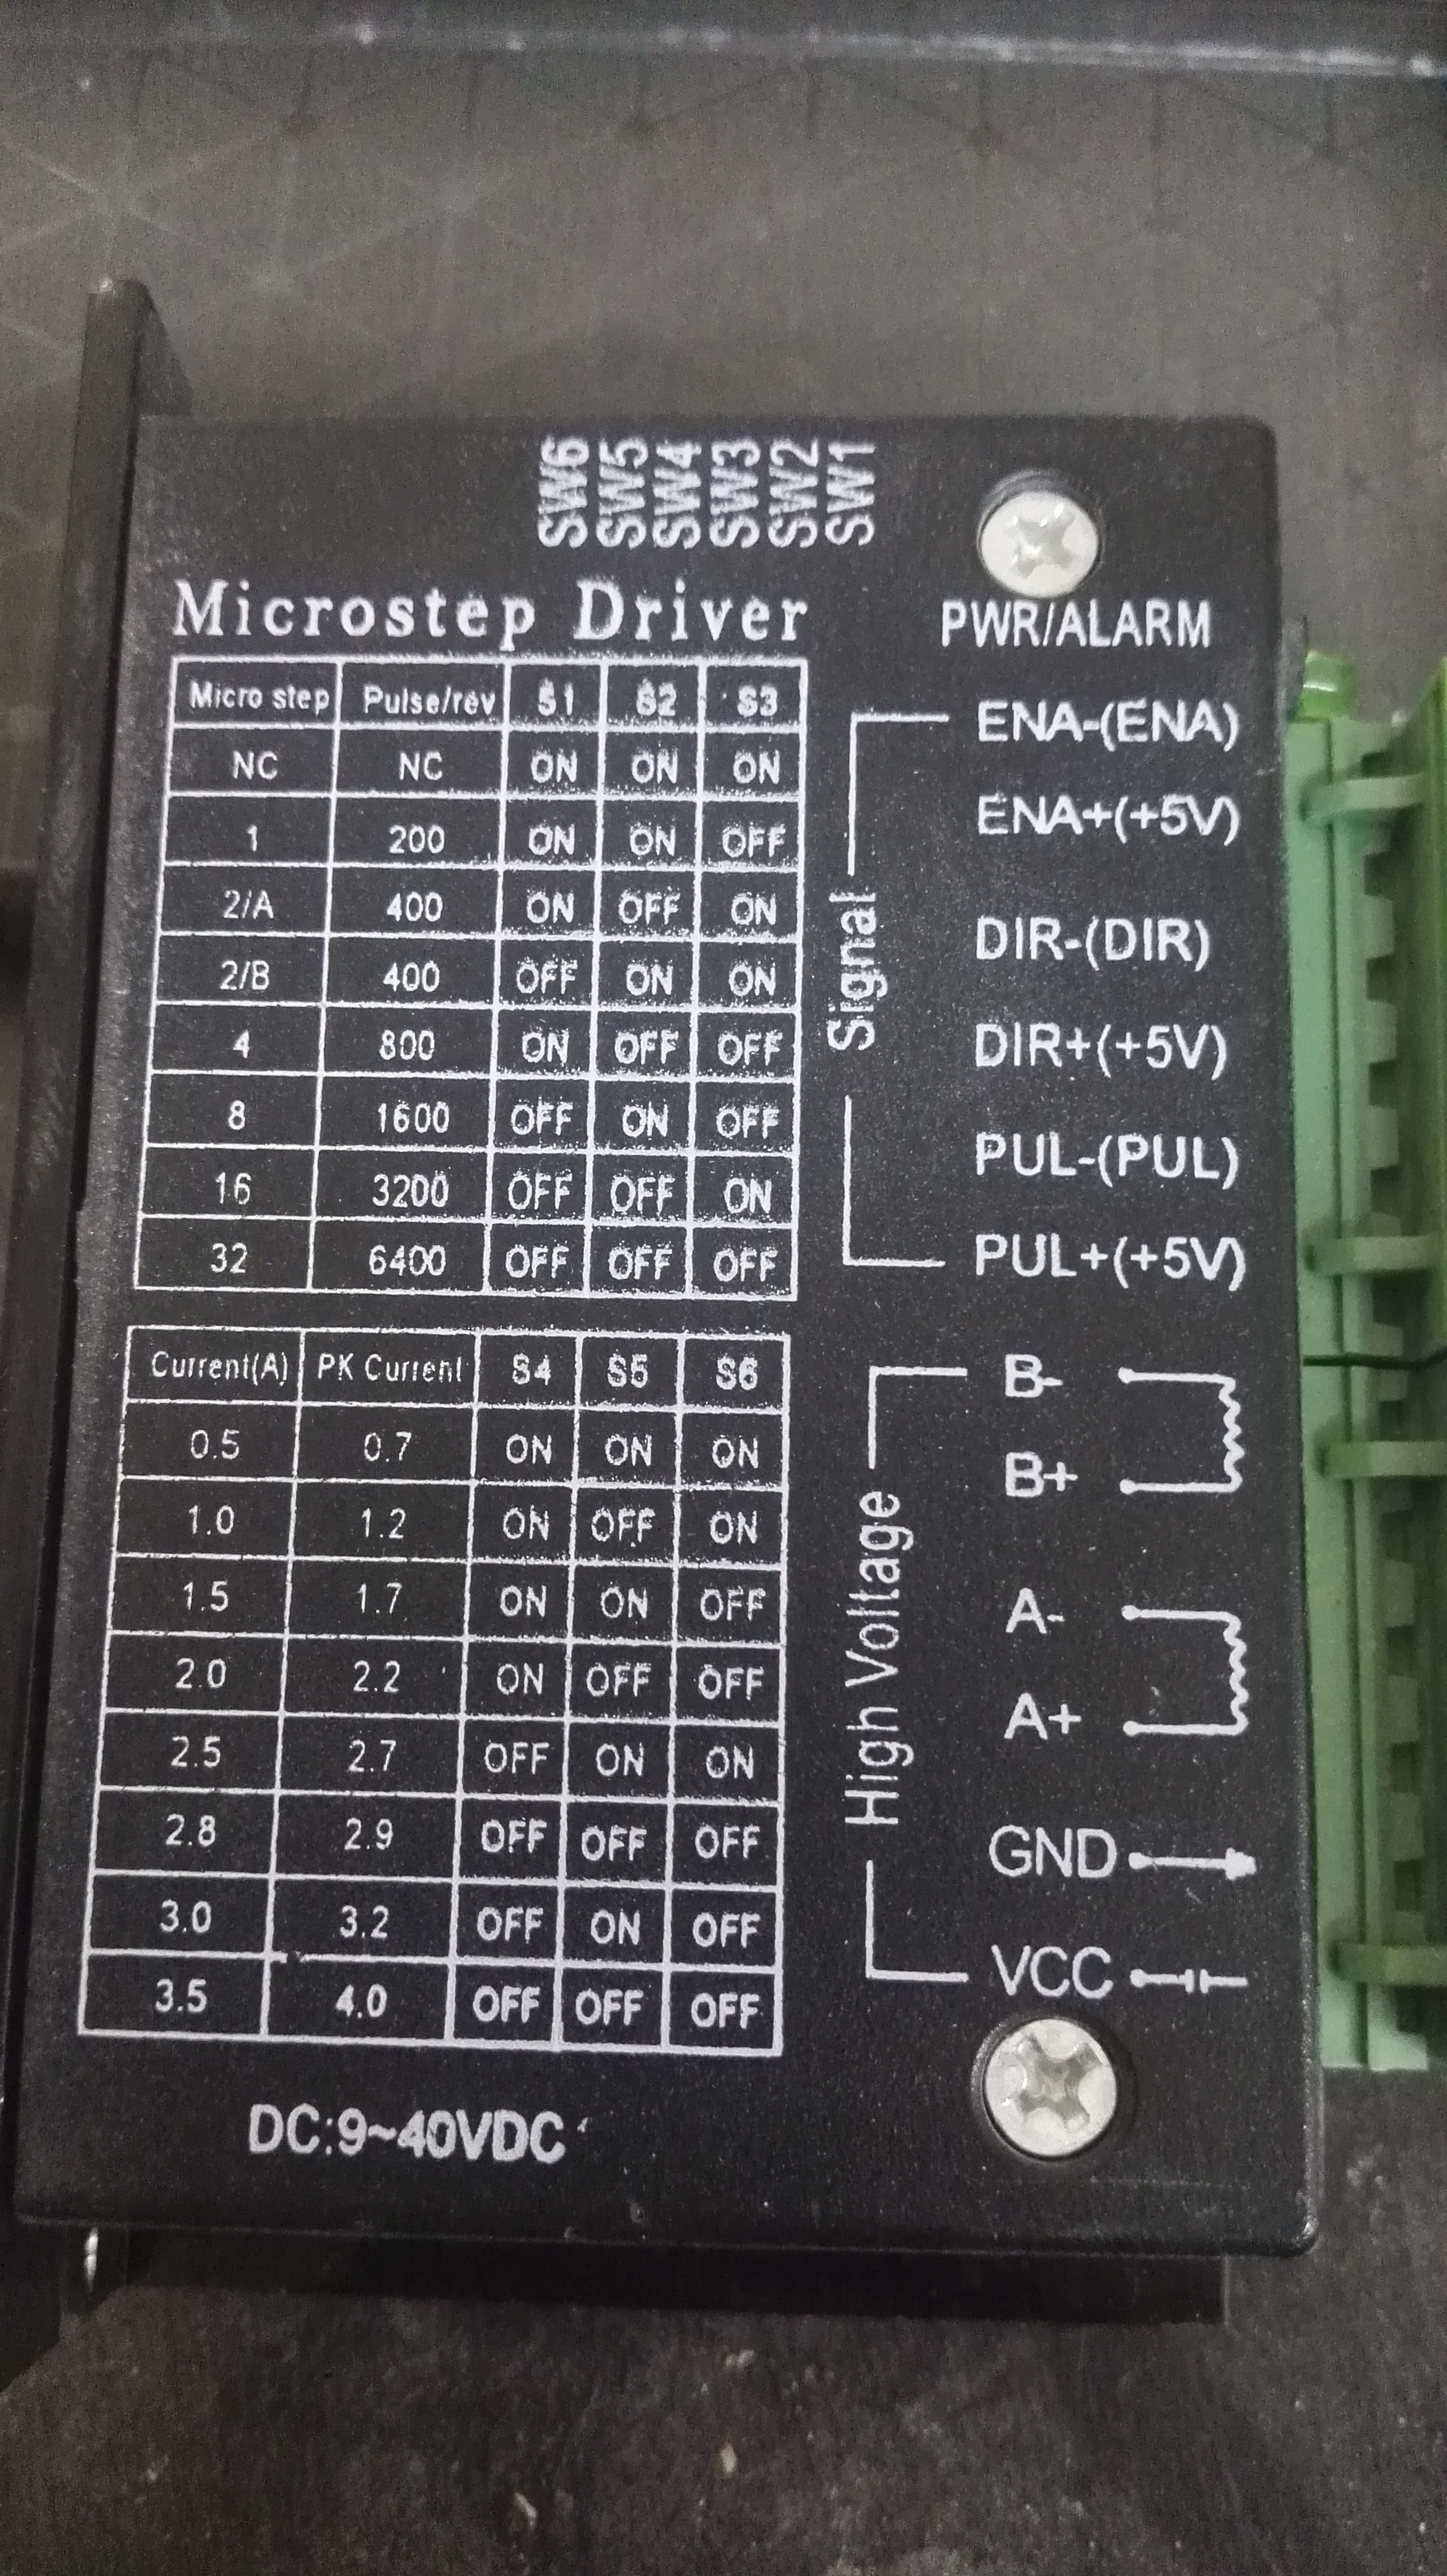 SW6
SW5
SW4
SW3
SW2
SW1
Microstep Driver
Micro step Pulse/rev S1 S2 S3
NC NC ON ON ON
1 200 ON ON OFF
2/A 400 ON OFF ON
2/B 400 OFF ON ON
4 800 ON OFF OFF
8 1600 OFF ON OFF
16 3200 OFF OFF ON
32 6400 OFF OFF OFF
Current(A) PK Current S4 S5 S6
0.5 0.7 ON ON ON
1.0 1.2 ON OFF ON
1.5 1.7 ON ON OFF
2.0 2.2 ON OFF OFF
2.5 2.7 OFF ON ON
2.8 2.9 OFF OFF OFF
3.0 3.2 OFF ON OFF
3.5 4.0 OFF OFF OFF
DC:9~40VDC
PWR/ALARM
Signal
ENA-(ENA)
ENA+(+5V)
DIR-(DIR)
DIR+(+5V)
PUL-(PUL)
PUL+(+5V)
High Voltage
B-
B+
A-
A+
GND
VCC